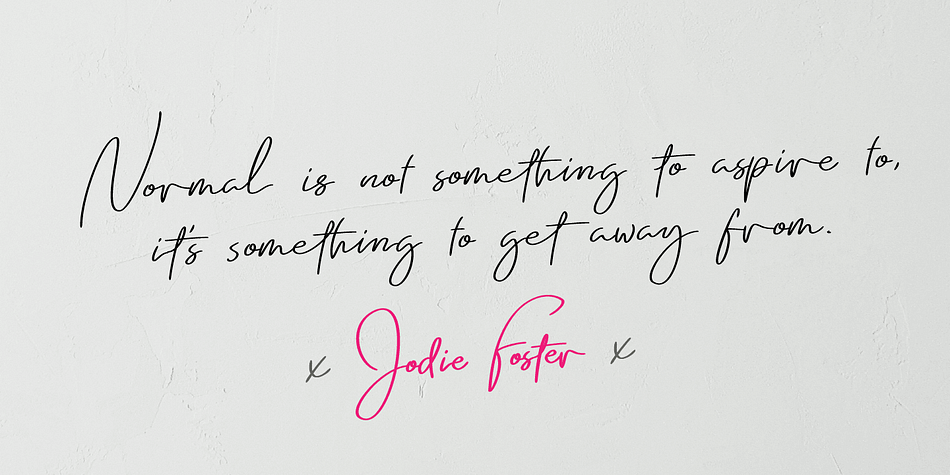 Normal is not something to aspire to,
it's something to get away from.
x Jodie Foster x